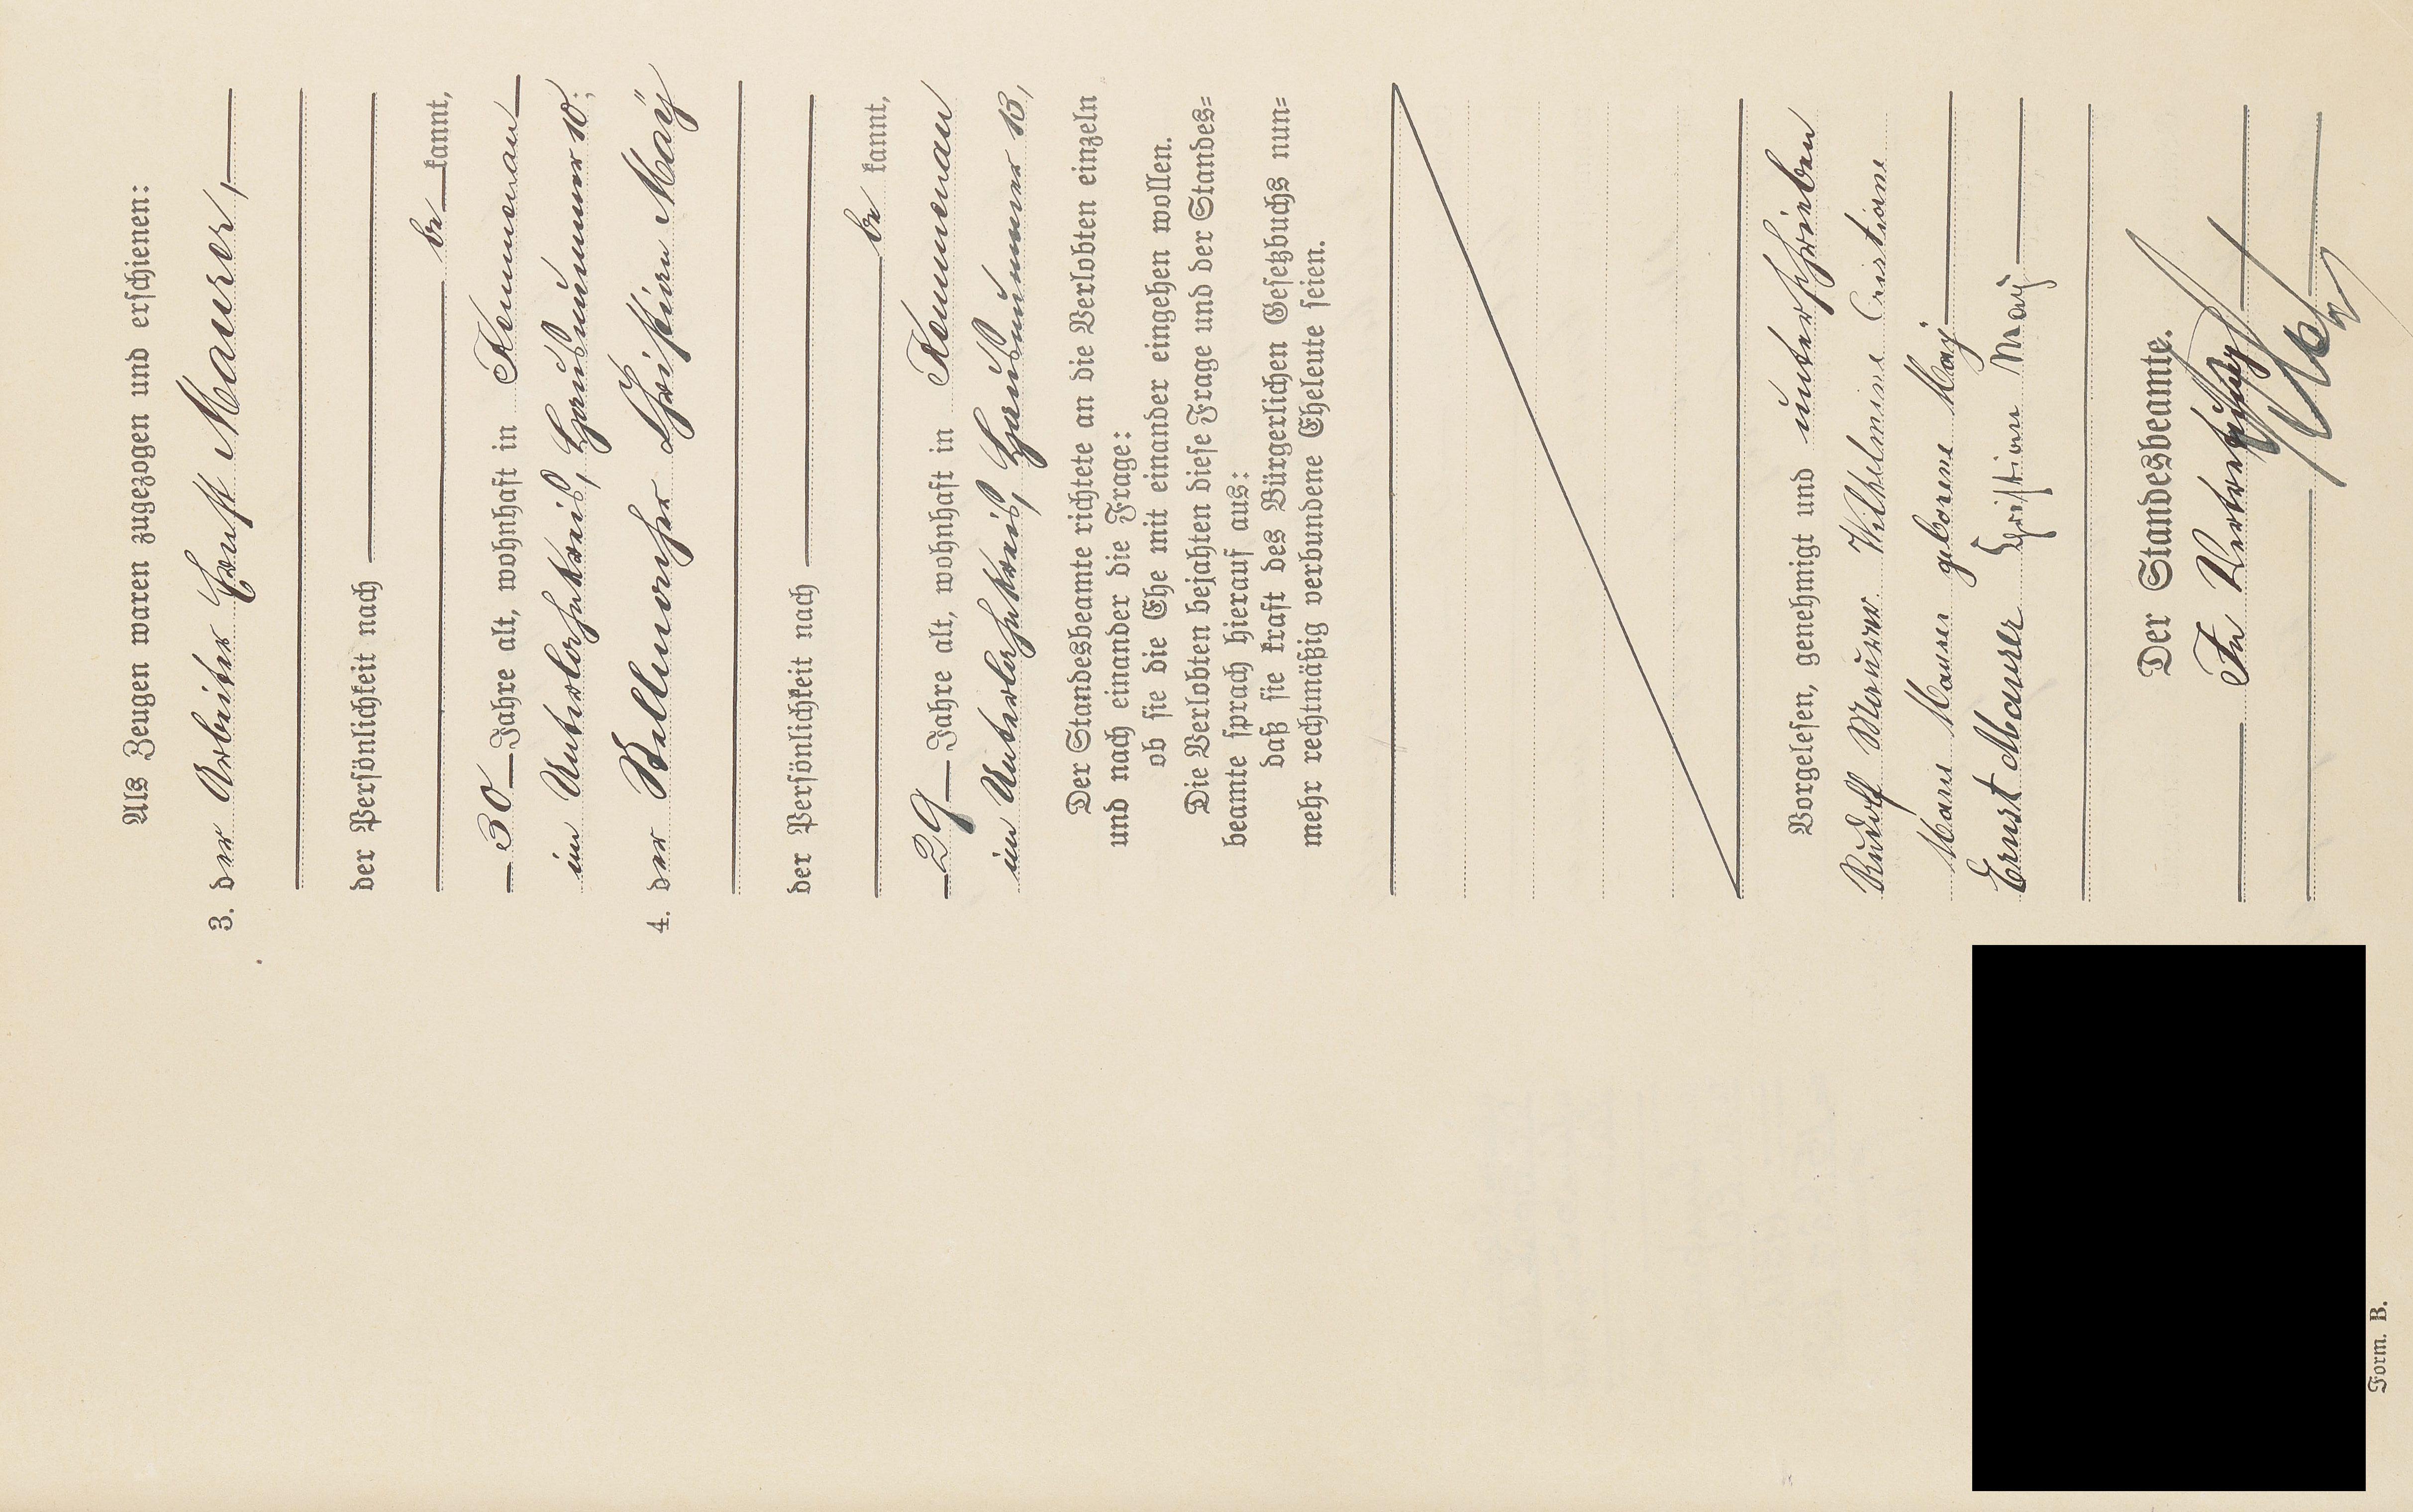 Als Zeugen waren zugezogen und erschienen:
3. der Arbeiter Ernst Maurer,
der Persönlichkeit nach
be kannt,
30 Jahre alt, wohnhaft in Kommenau
im Unterlohnkreis, Hausnummer 10;
4. der Kellner Christian Maÿ
der Persönlichkeit nach
be kannt,
29 Jahre alt, wohnhaft in Kommenau
im Unterlahnkreis, Hausnummer 13,
Der Standesbeamte richtete an die Verlobten einzeln
und nach einander die Frage:
ob sie die Ehe mit einander eingehen wollen.
Die Verlobten bejahten diese Frage und der Standes=
beamte sprach hierauf aus:
daß sie kraft des Bürgerlichen Gesetzbuchs nun=
mehr rechtmäßig verbundene Eheleute seien.
Vorgelesen, genehmigt und unterschrieben
Rudolf Maurer. Wilhelmine Cristiane
Maurer geborene May
Ernst Maurer Christian May
Der Standesbeamte.
In Vertretung
Form. B.